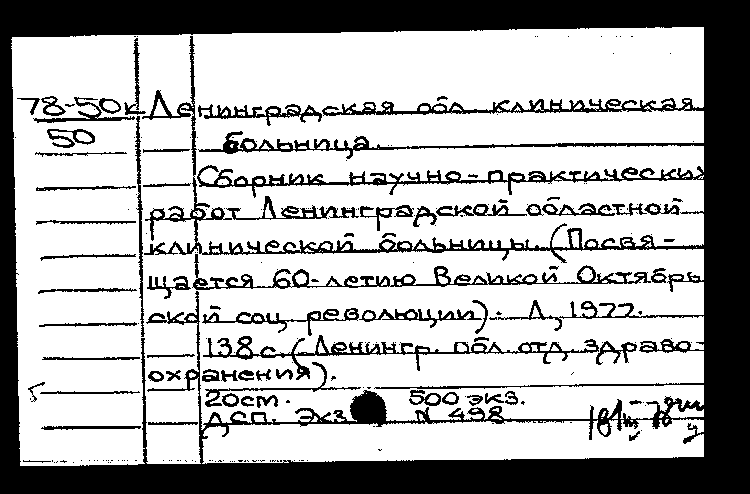 78-50к Ленинградская обл. клиническая
50
больница.
Сборник научно-практических
работ Ленинградской областной
клинической больницы. (Посвя-
щается 60-летию Великой Октябрь
ской соц. революции). Л., 1977.
138 с. (Ленингр. обл. отд. здраво-
охранения).
20см. 500 экз.
ДСП. Экз N 498